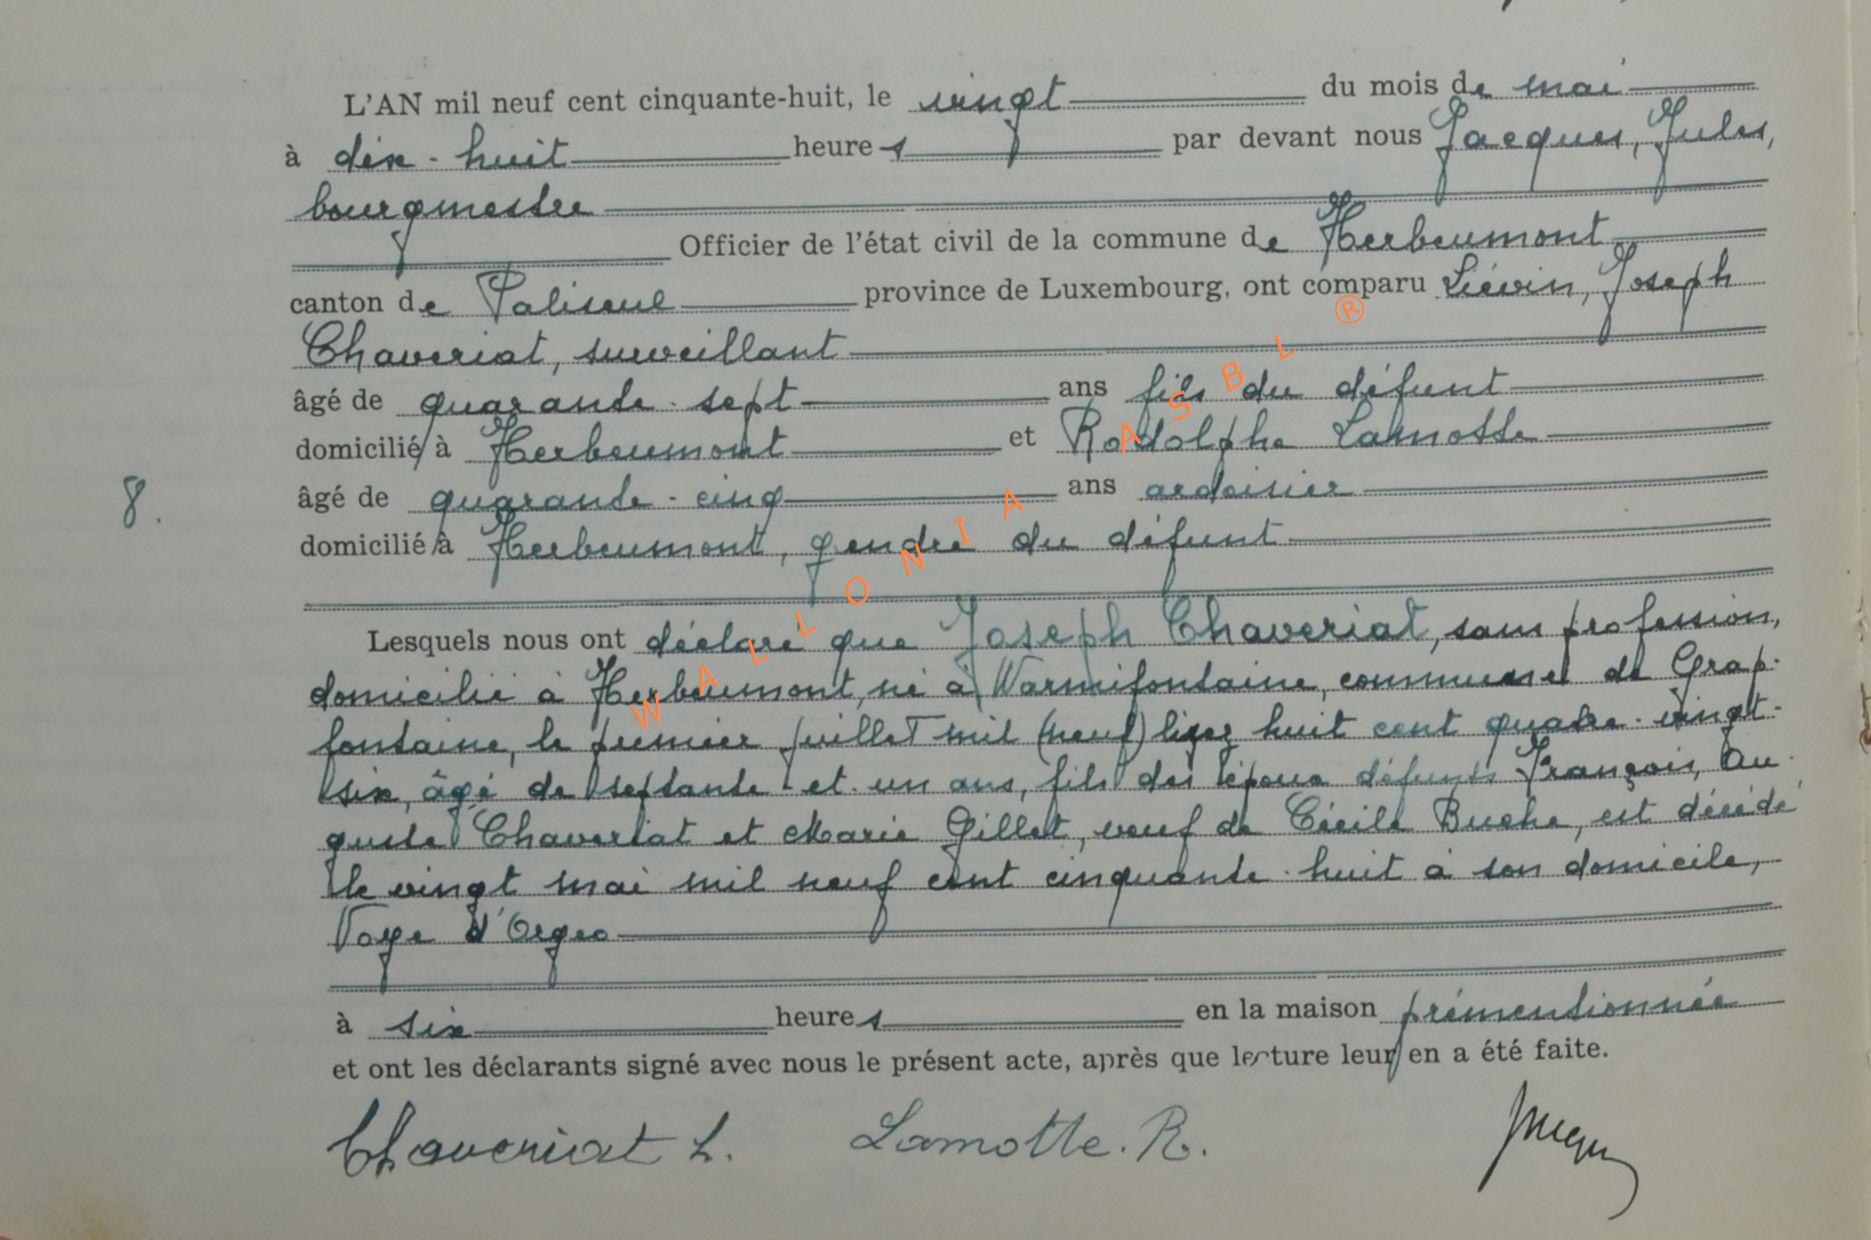 L'AN mil neuf cent cinquante-huit, le vingt du mois de mai
à dix-huit heures par devant nous Jacques, Jules,
bourgmestre
Officier de l'état civil de la commune de Herbeumont
canton de Paliseul province de Luxembourg, ont comparu Liévin, Joseph
Chaveriat, surveillant
âgé de quarante-sept ans fils du défunt
domicilié à Herbeumont et Rodolphe Lamotte
8. âgé de quarante-cinq ans ardoisier
domicilié à Herbeumont, gendre du défunt
Lesquels nous ont déclaré que Joseph Chaveriat, sans profession,
domicilié à Herbeumont, né à Warmifontaine, commune de Grap-
fontaine, le premier juillet mil (neuf) lisez huit cent quatre-vingt-
six, âgé de septante et un ans, fils des époux défunts François, Au-
guste Chaveriat et Marie Gillet, veuf de Cécile Buche, est décédé
le vingt mai mil neuf cent cinquante-huit à son domicile,
Voye d'Orgeo
à six heures en la maison prémentionnée
et ont les déclarants signé avec nous le présent acte, après que lecture leur en a été faite.
Chaveriat L. Lamotte. R. Jacques
WALLONIA ASBL ®